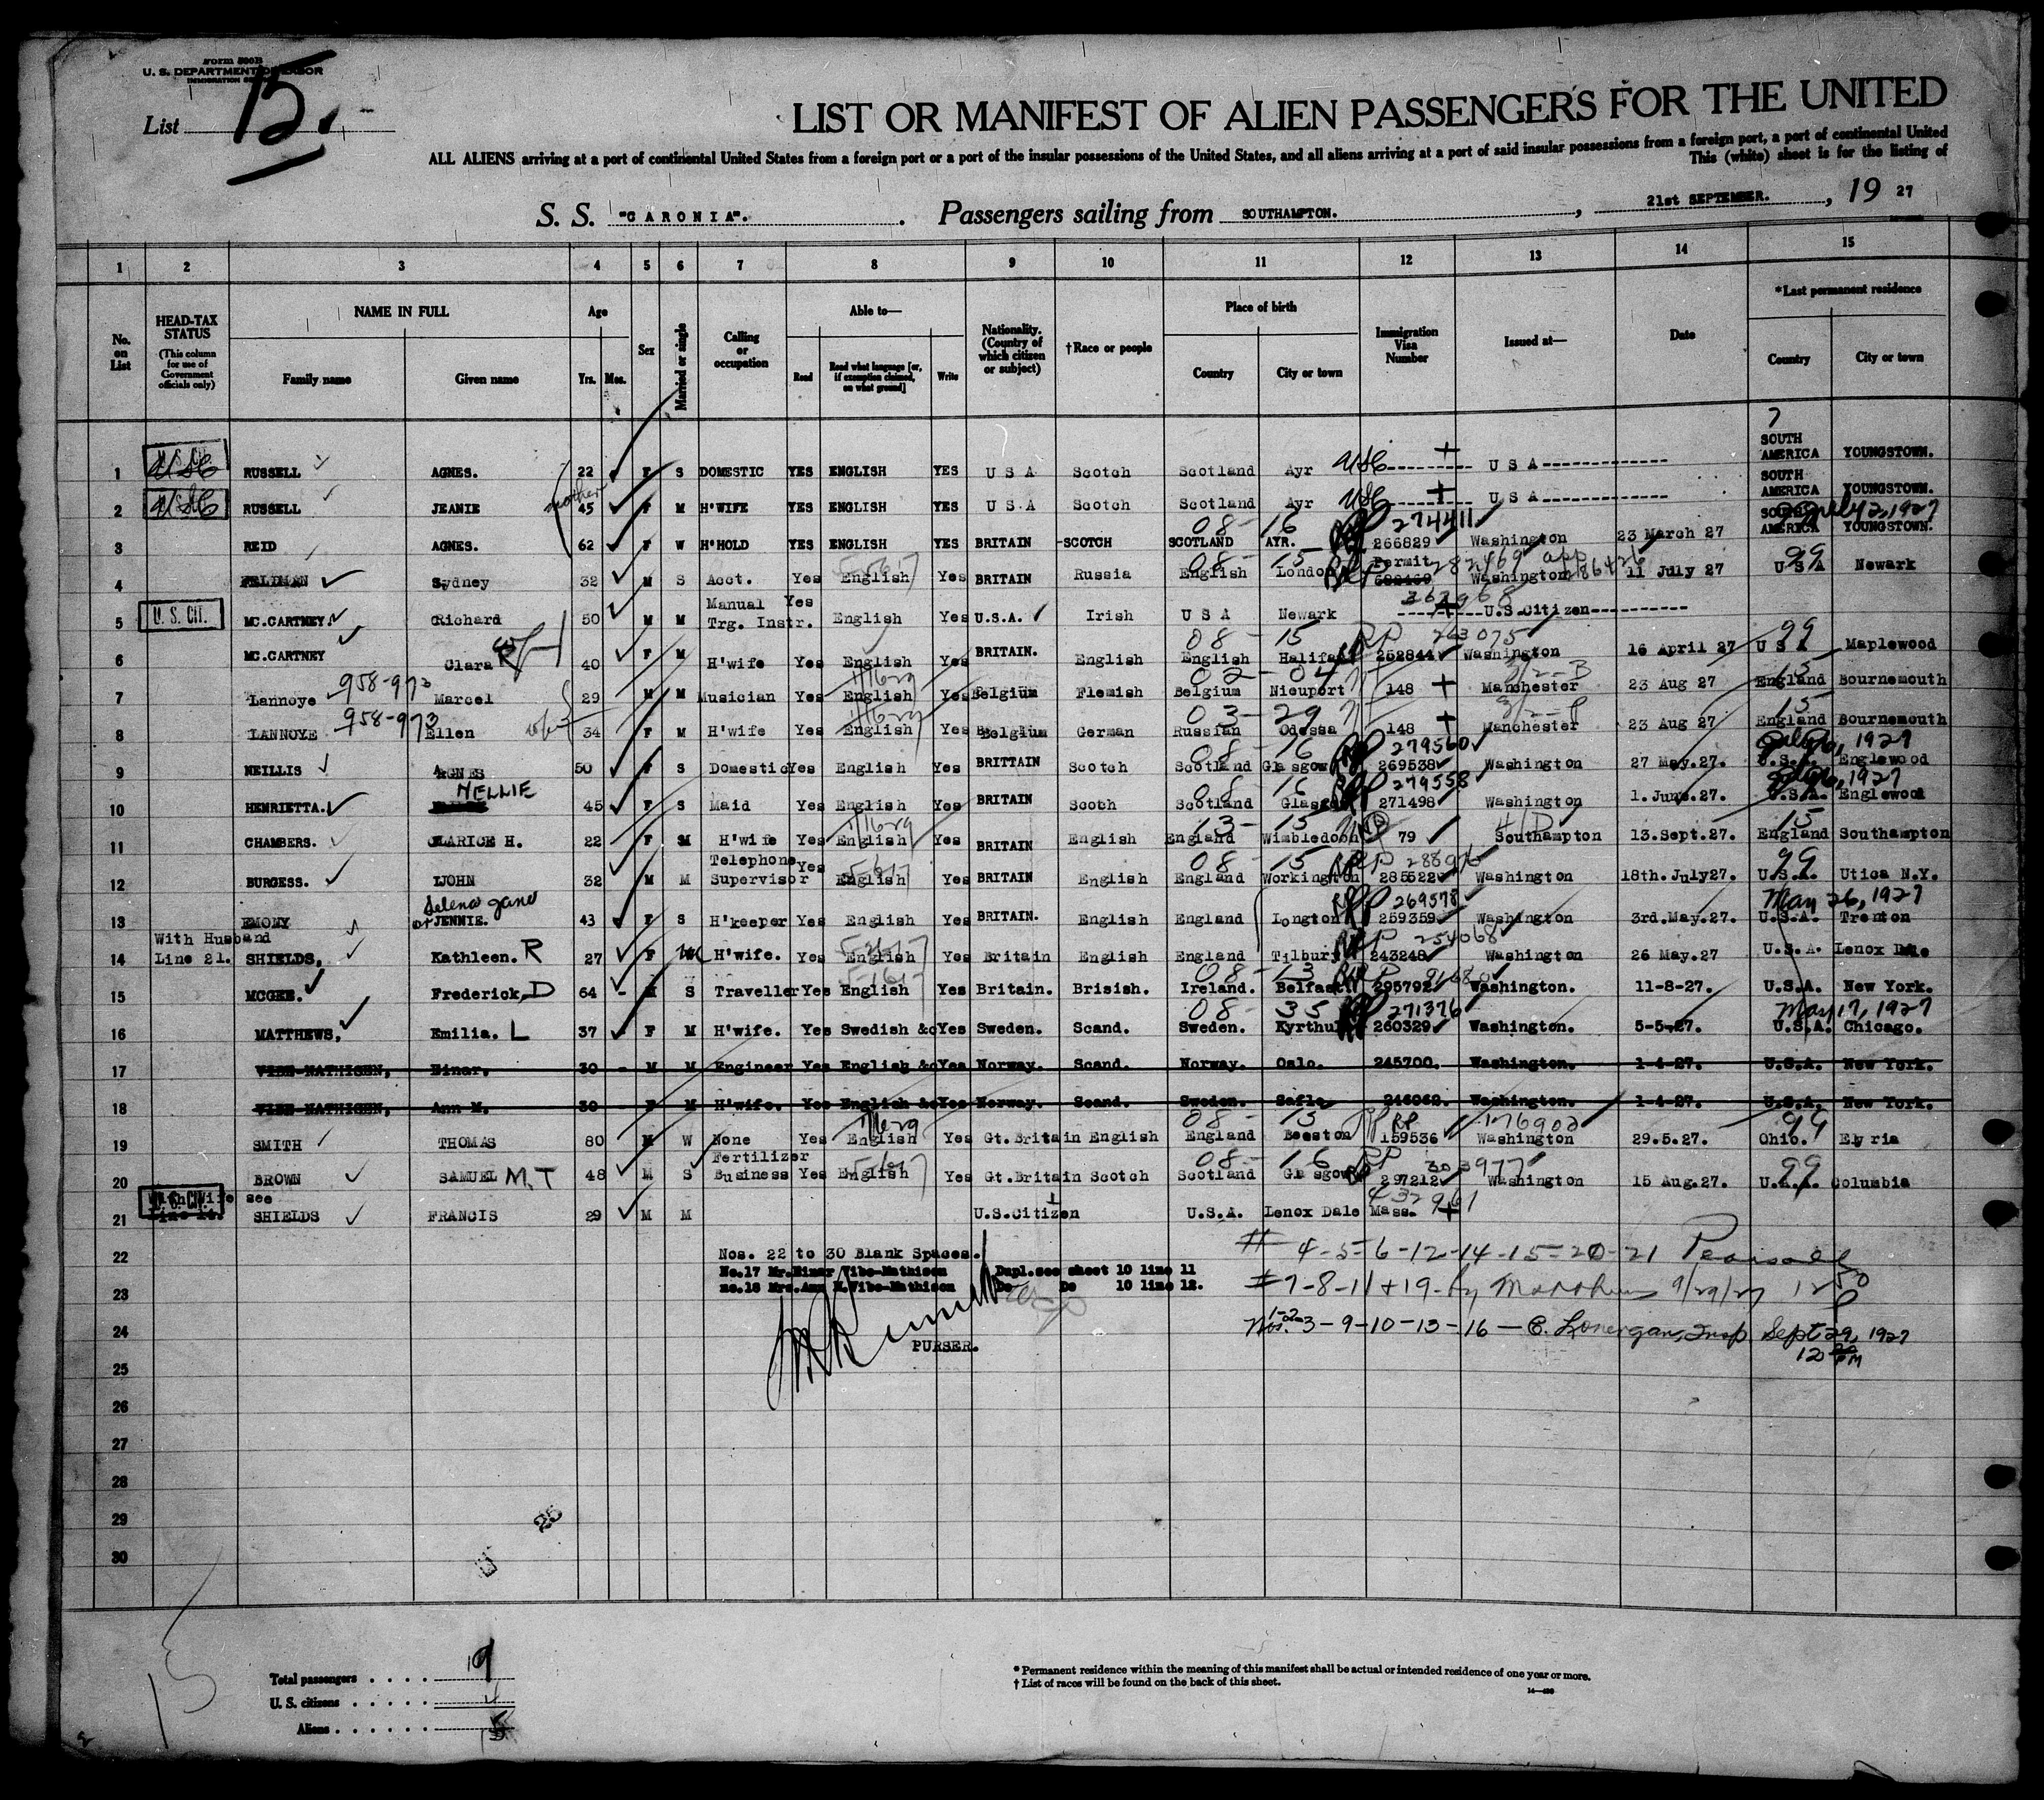 Form 500B
U. S. DEPARTMENT OF LABOR
IMMIGRATION
List 15.
LIST OR MANIFEST OF ALIEN PASSENGERS FOR THE UNITED
ALL ALIENS arriving at a port of continental United States from a foreign port or a port of the insular possessions of the United States, and all aliens arriving at a port of said insular possessions from a foreign port, a port of continental United
This (white) sheet is for the listing of
S. S. "CARONIA". Passengers sailing from SOUTHAMPTON. , 21st SEPTEMBER. , 19 27
1 2 3 4 5 6 7 8 9 10 11 12 13 14 15
No. on List
HEAD-TAX STATUS (This column for use of Government officials only)
NAME IN FULL Family name Given name
Age Yrs. Mos.
Sex
Married or single
Calling or occupation
Able to— Read Read what language [or, if exemption claimed, on what ground] Write
Nationality. (Country of which citizen or subject)
†Race or people
Place of birth Country City or town
Immigration Visa Number
Issued at—
Date
*Last permanent residence Country City or town
1 USC RUSSELL AGNES. 22 F S DOMESTIC YES ENGLISH YES U S A Scotch Scotland Ayr USC U S A SOUTH AMERICA YOUNGSTOWN.
2 USC RUSSELL JEANIE mother 45 F M H'WIFE YES ENGLISH YES U S A Scotch Scotland Ayr USC U S A SOUTH AMERICA YOUNGSTOWN.
08- 16 274411
3 REID AGNES. 62 F W H'HOLD YES ENGLISH YES BRITAIN SCOTCH SCOTLAND AYR. 266829 Washington 23 March 27 SOUTH AMERICA YOUNGSTOWN.
08- 15 Permit 282469 99
4 FELDMAN Sydney 32 M S Acct. Yes English Yes BRITAIN Russia English London Washington 11 July 27 U S A Newark
5 U. S. CIT. MC.CARTNEY. Richard 50 M M Manual Trg. Instr. Yes English Yes U.S.A. Irish U S A Newark U.S.Citizen
08- 15 RP 263075 99
6 MC.CARTNEY Clara 40 F M H'wife Yes English Yes BRITAIN. English English Halifax 252844 Washington 16 April 27 U S A Maplewood
958-973 1/1629 02-04 3/2-B 15
7 Lannoye Marcel 29 M M Musician Yes English Yes Belgium Flemish Belgium Nieuport 148 Manchester 23 Aug 27 England Bournemouth
958-973 1/1629 03-29 15
8 LANNOYE Ellen wife 34 F M H'wife Yes English Yes Belgium German Russian Odessa 148 Manchester 23 Aug 27 England Bournemouth
08- 16 279560 July 6, 1927
9 NEILLIS AGNES 50 F S Domestic Yes English Yes BRITTAIN Scotch Scotland Glasgow 269538 Washington 27 May.27. U.S.A. Englewood
NELLIE 08- 16 279558
10 HENRIETTA. 45 F S Maid Yes English Yes BRITAIN Scoth Scotland Glasgow 271498 Washington 1. June.27. U.S.A. Englewood
1/1629 13- 15 4/D 15
11 CHAMBERS. CLARICE H. 22 F M H'wife Yes English Yes BRITAIN English England Wimbledon 79 Southampton 13.Sept.27. England Southampton
08- 15 RP 288976 99
12 BURGESS. JOHN 32 M M Telephone Supervisor Yes English Yes BRITAIN English England Workington 285522 Washington 18th. July27. U.S.A. Utica N.Y.
Selena Jane 269578 May 26, 1927
13 EMONY or JENNIE. 43 F S H'keeper Yes English Yes BRITAIN. English England Longton 259359 Washington 3rd.May.27. U.S.A. Trenton
With Husband 254068
14 Line 21. SHIELDS, Kathleen. R 27 F M H'wife. Yes English Yes Britain English England Tilbury 243248 Washington 26 May.27 U.S.A. Lenox Dale
08-13
15 MCGEE. Frederick, D 64 - M S Traveller Yes English Yes Britain. Brisish. Ireland. Belfast 295792 Washington. 11-8-27. U.S.A. New York.
08- 35 271376 May 17, 1927
16 MATTHEWS, Emilia. L 37 F M H'wife. Yes Swedish &c Yes Sweden. Scand. Sweden. 260329 Washington. 5-5-27. U.S.A. Chicago.
17 VIBE-MATHISEN, Einar. 30 - M M Engineer Yes English &c Yes Norway. Scand. Norway. Oslo. 245700. Washington. 1-4-27. U.S.A. New York.
18 VIBE-MATHISEN, Ann M. 30 - F M H'wife. Yes English &c Yes Norway. Scand. Sweden. Safle. 246062. Washington. 1-4-27. U.S.A. New York.
1/1629 08- 15 RP 176902 99
19 SMITH THOMAS 80 M W None Yes English Yes Gt.Britain English England Beeston 159536 Washington 29.5.27. Ohio. Elyria
08- 16 RP 303977 99
20 BROWN SAMUEL M.T 48 M S Fertilizer Business Yes English Yes Gt.Britain Scotch Scotland Glasgow 297212 Washington 15 Aug.27. U.S.A. Columbia
With wife see U.S. CIT. 432961
21 line 14. SHIELDS FRANCIS 29 M M U.S.Citizen U.S.A. Lenox Dale Mass.
22 Nos. 22 to 30 Blank Spaces. # 4-5-6-12-14-15-20-21 Pearsall
No.17 Mr.Einar Vibe-Mathisen Dupl.see sheet 10 line 11
23 no.18 Mrs.Ann M.Vibe-Mathisen Do Do 10 line 12. # 7-8-11+19- by 9/29/27 12 50 P
24 Nos. 1-2-3-9-10-13-16- C. Lonergan, Insp Sept 29, 1927
PURSER.
12 PM
25
26
27
28
29
30
Total passengers 19
U. S. citizens 4
Aliens 15
* Permanent residence within the meaning of this manifest shall be actual or intended residence of one year or more.
† List of races will be found on the back of this sheet.